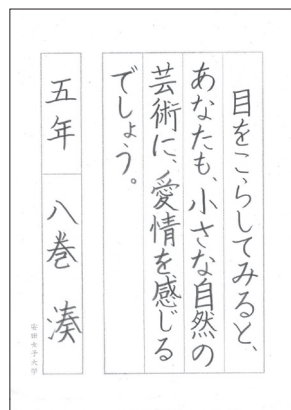 目をこらしてみると、
あなたも、小さな自然の
芸術に、愛情を感じる
でしょう。
五年 八巻 湊
安田女子大学